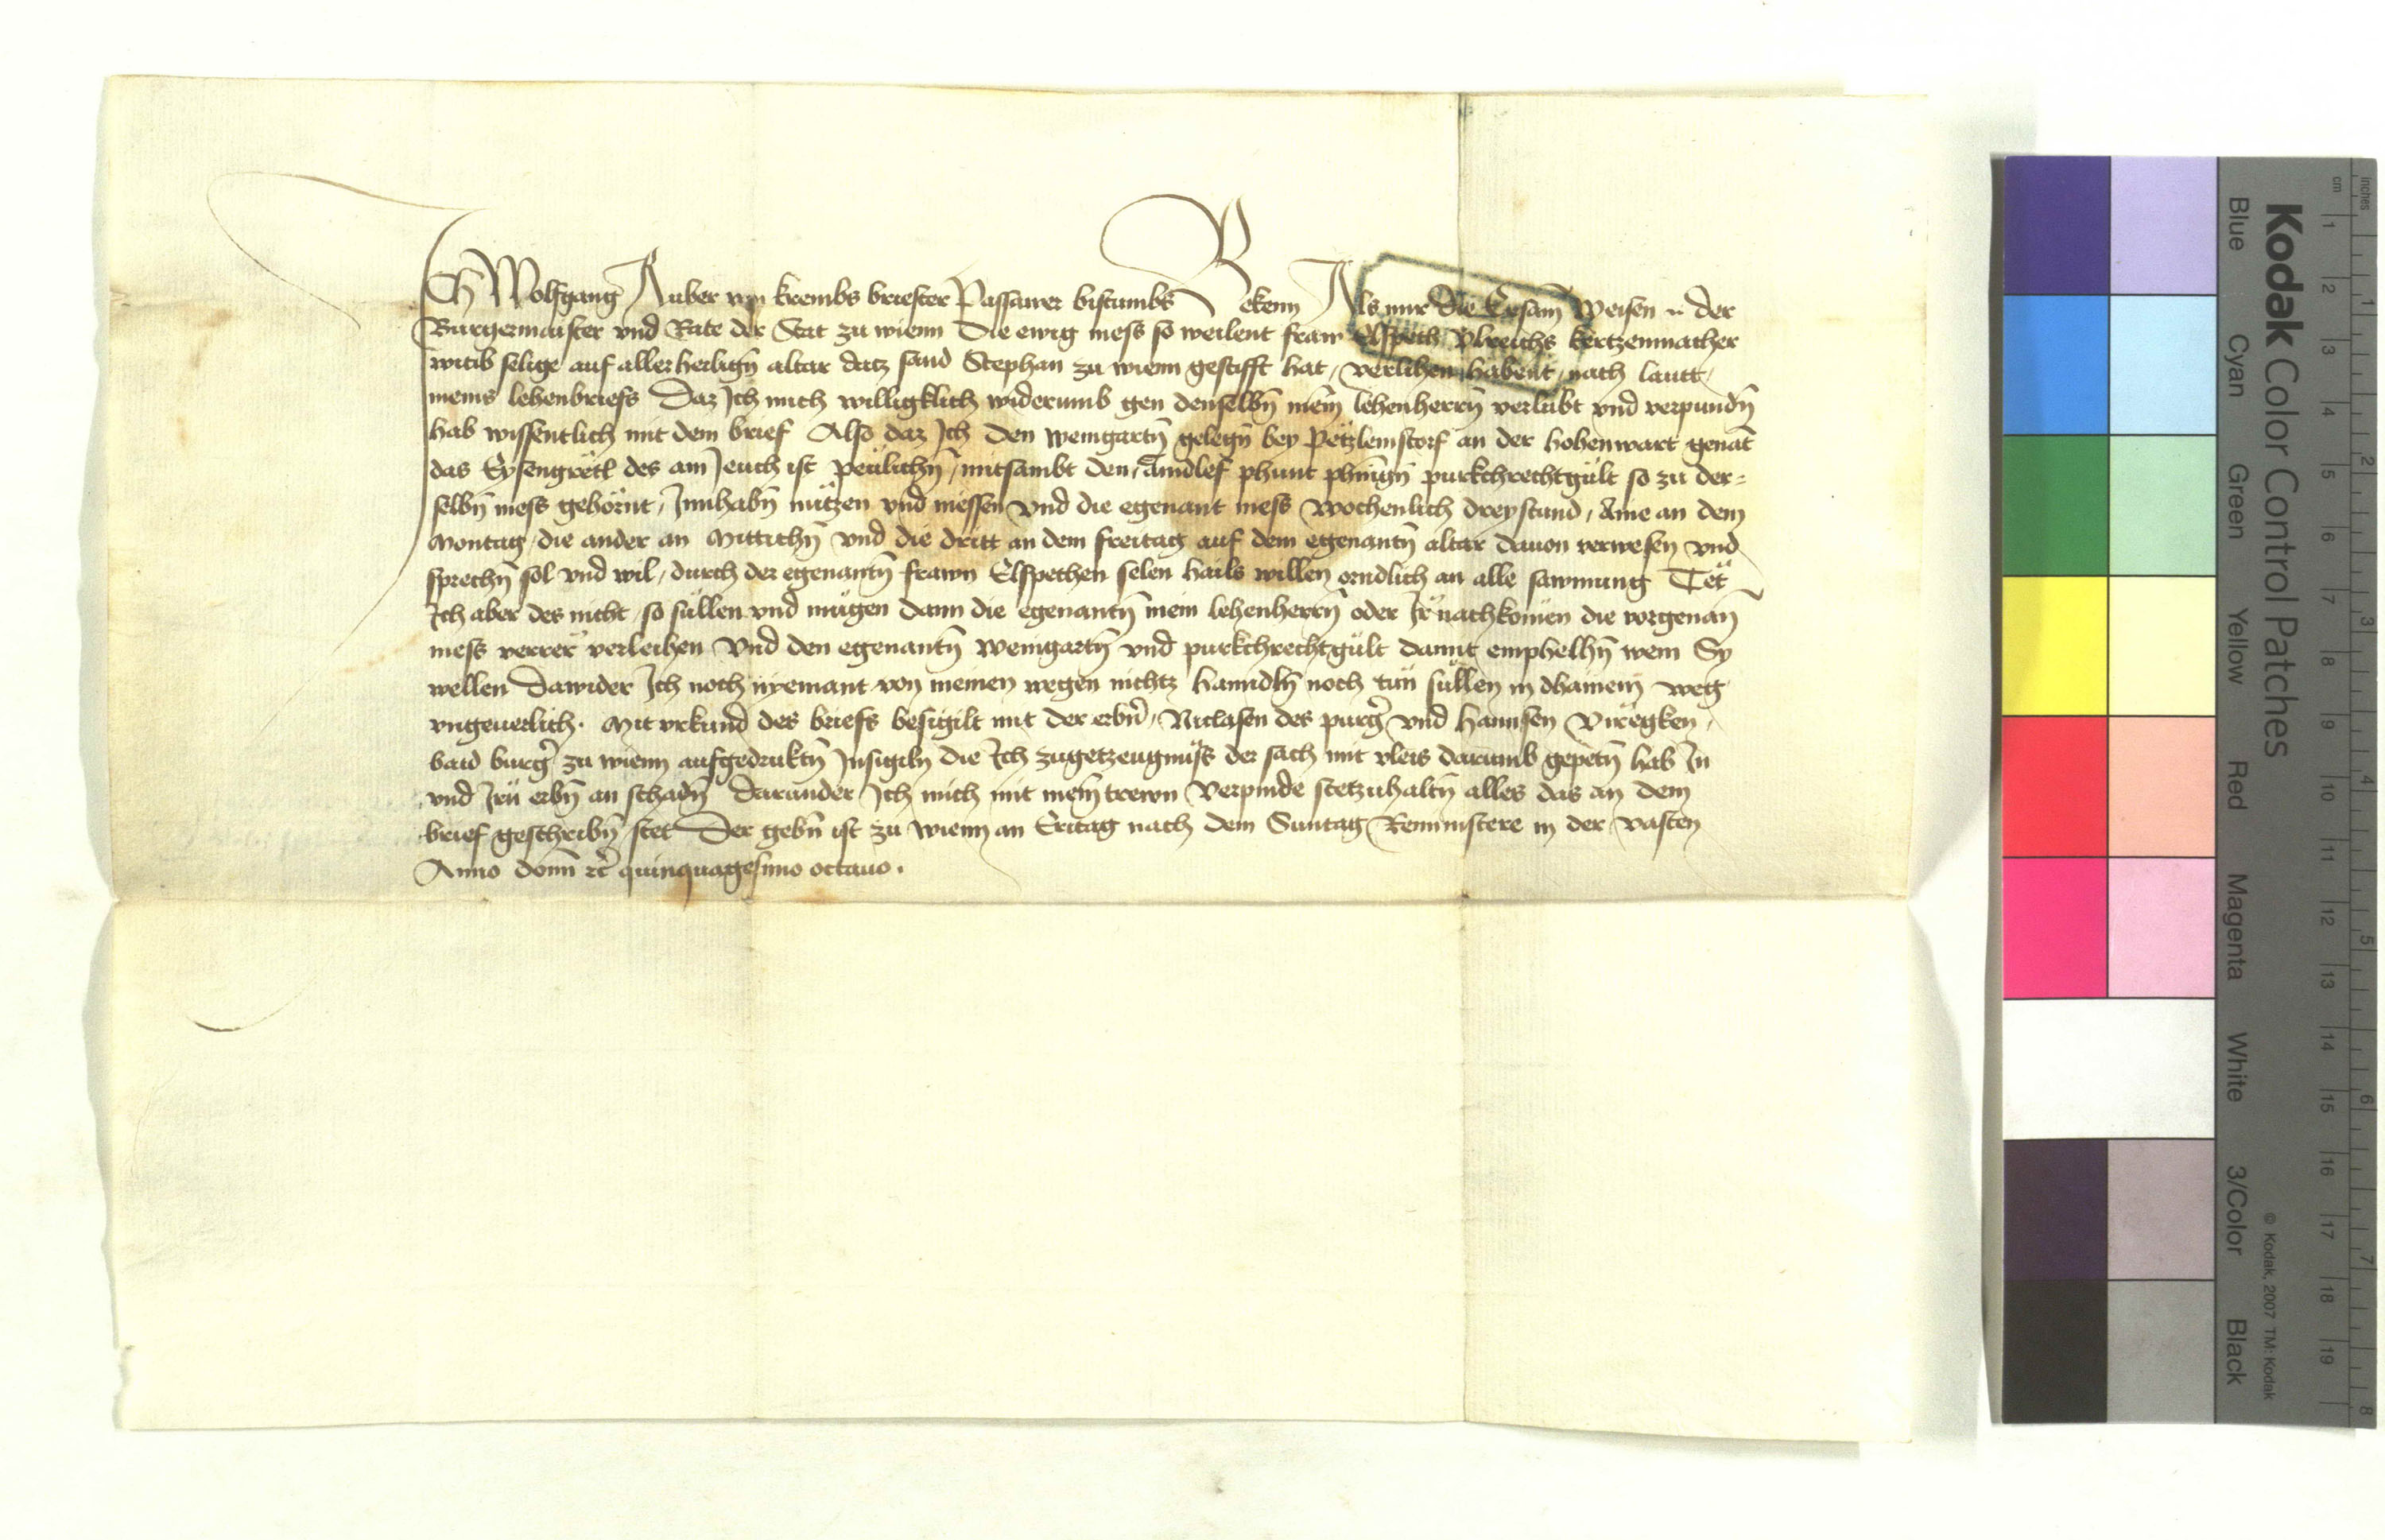 Ich Wolfgang Auber von krembs briester Passawer bistumbs Bekenn Als mir die Ersam Weisen n der
Burgermaister vnd Rate der Stat zu wienn die ewig mess so weilent fraw Elspeth Vlreichs kertzenmacher
witib selige auf allerheilign̄ altar datz sand Stephan zu wienn gestifft hat, verlihen habent, nach lautt,
meins lehenbriefs Daz Ich mich willigklich widerumb gen denselbn̄ mein̄ lehenherrn̄ verlubt vnd verpundn̄
hab wissentlich mit dem brief Also daz Ich den weingartn̄ gelegn̄ bey Petzleinstorf an der hohenwart genāt
das Eysengretl des am Jeuch ist peulichn̄, mitsambt den, aindlef phunt phenn̄gn̄ purkchrechtgült so zu der=
selbn̄ mess gehörnt, Innhabn̄ nützen vnd niessen vnd die egenant mess wochenlich dreystund, Aine an dem
Montag, die ander an Mittichn̄ vnd die dritt an dem freitag auf dem egenantn̄ altar dauon verwesen vnd
sprechn̄ sol vnd wil, durch der egenantn̄ frawn Elspethen selen hails willen orndlich an alle sawmung Tët
Ich aber des nicht, so süllen vnd mügen dann die egenantn̄ mein lehenherrn̄ oder Ir nachkomen die vorgenan̄
mess verrer verleihen Vnd den egenantn̄ weingartn̄ vnd purkchrechtgült damit emphelhn̄ wem Sy
wellen Dawider Ich noch nyemant von meinen wegen nichtz hanndln̄ noch tün süllen in dhainem weg
vngeuerlich. Mit vrkund des briefs besigilt mit der erbn̄, Niclasen des purgr̄ vnd hannsen Viregken,
baid burgr̄ zu wienn aufgedruktn̄ Insigiln̄ die Ich zugetzeugnüss der sach mit vleis darumb gepetn̄ hab In
vnd Irn̄ erbn̄ an schadn̄ Darunder Ich mich mit mein̄ trewn Verpinde stetzuhaltn̄ alles das an dem
brief geschribn̄ stet Der gebn̄ ist zu Wienn an Eritag nach dem Suntag Reminiscere in der vasten
Anno domī ꝛc̄ quinquagesimo octauo.
Kodak Color Control Patches
Blue Cyan Green Yellow Red Magenta White 3/Color Black
© Kodak, 2007 TM: Kodak
inches 1 2 3 4 5 6 7 8
cm 1 2 3 4 5 6 7 8 9 10 11 12 13 14 15 16 17 18 19